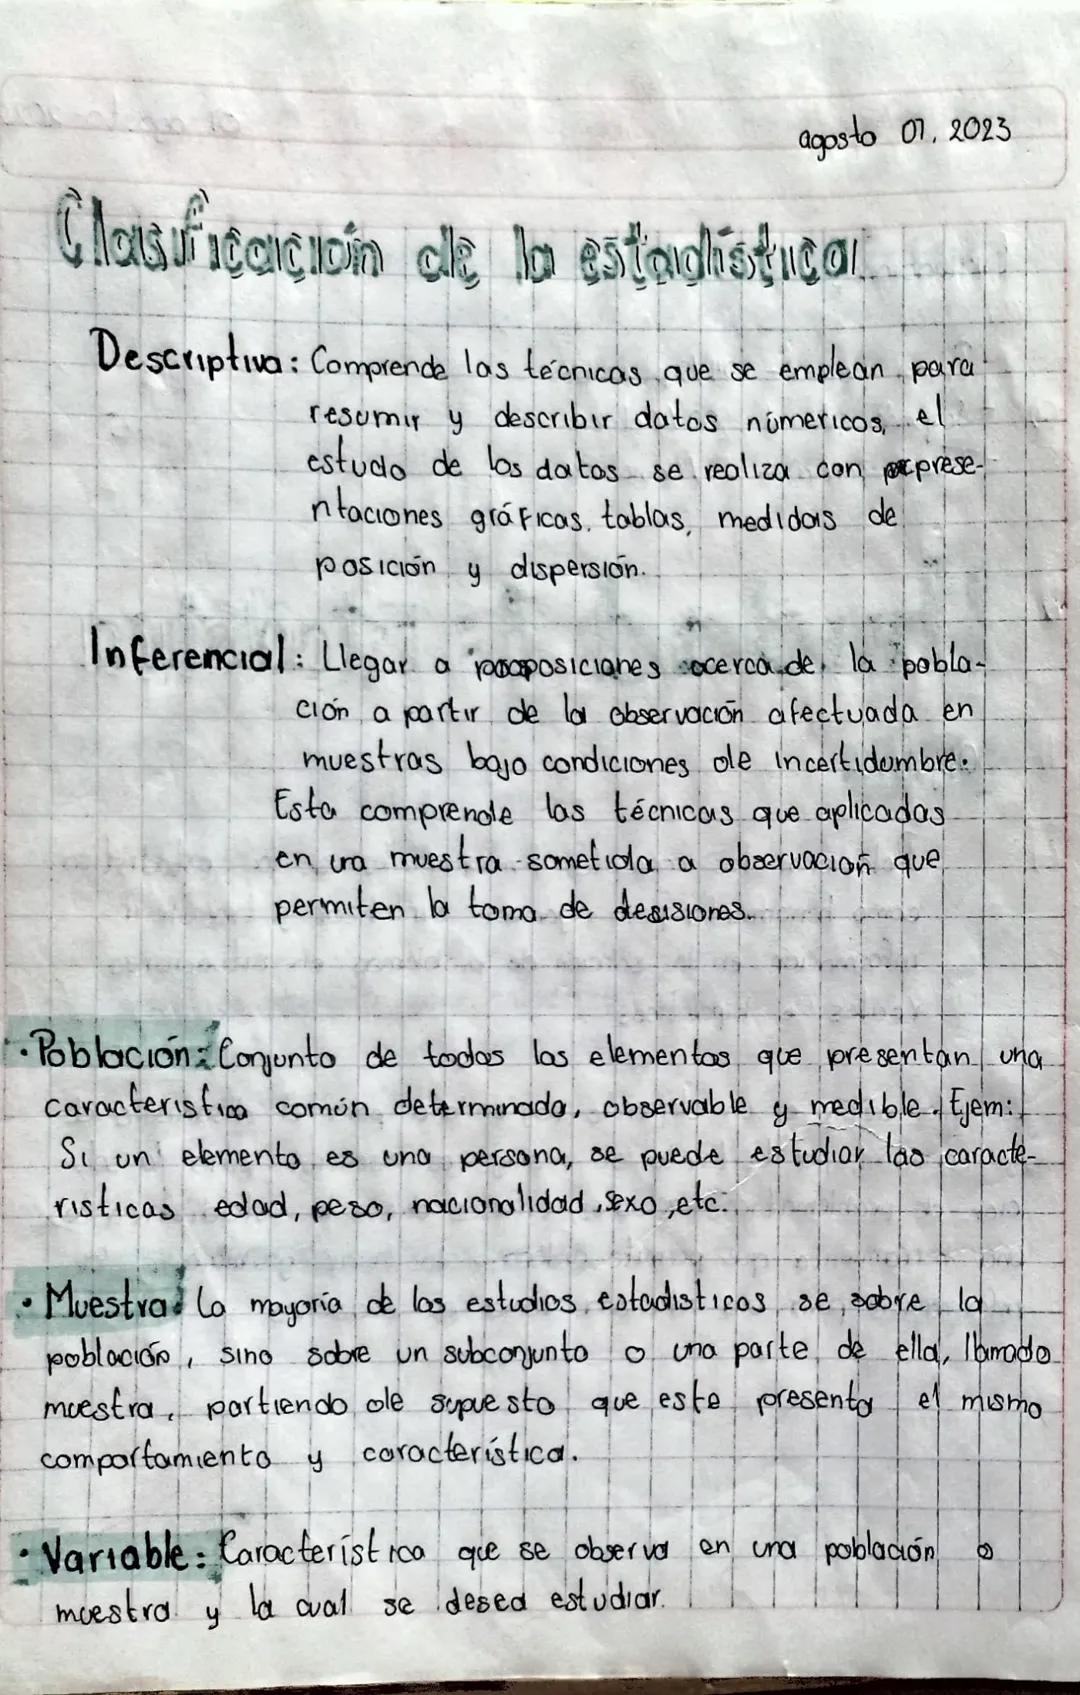 agosto 01, 2023
Clasificación de la estadística
Descriptiva: Comprende las técnicas que se emplean para
resumir y describir datos númericos, el
estudo de los datos se realiza con prese-
ntaciones gráficas, tablas, medidas de
posición y dispersión.
Inferencial: Llegar a proposiciones acerca de la pobla-
ción a partir de la observación afectuada en
muestras bajo condiciones de incertidumbre.
Esta comprende las técnicas que aplicadas
en una muestra sometida a observación que
permiten la toma de desisiones.
· Población: Conjunto de todos los elementos que presentan una
caracteristica común determinada, observable y medible. Ejem:
Si un elemento es una persona, se puede estudiar las caracte-
risticas edad, peso, nacionalidad, sexo, etc.
· Muestra: La mayoría de los estudios estadisticos se sobre la
población, sino sobre un subconjunto o una parte de ella, llamado
muestra, partiendo de supuesto que este presenta el mismo
comportamiento y característica.
· Variable: Característica que se observa en una población o
muestra y la cual se desea estudiar.